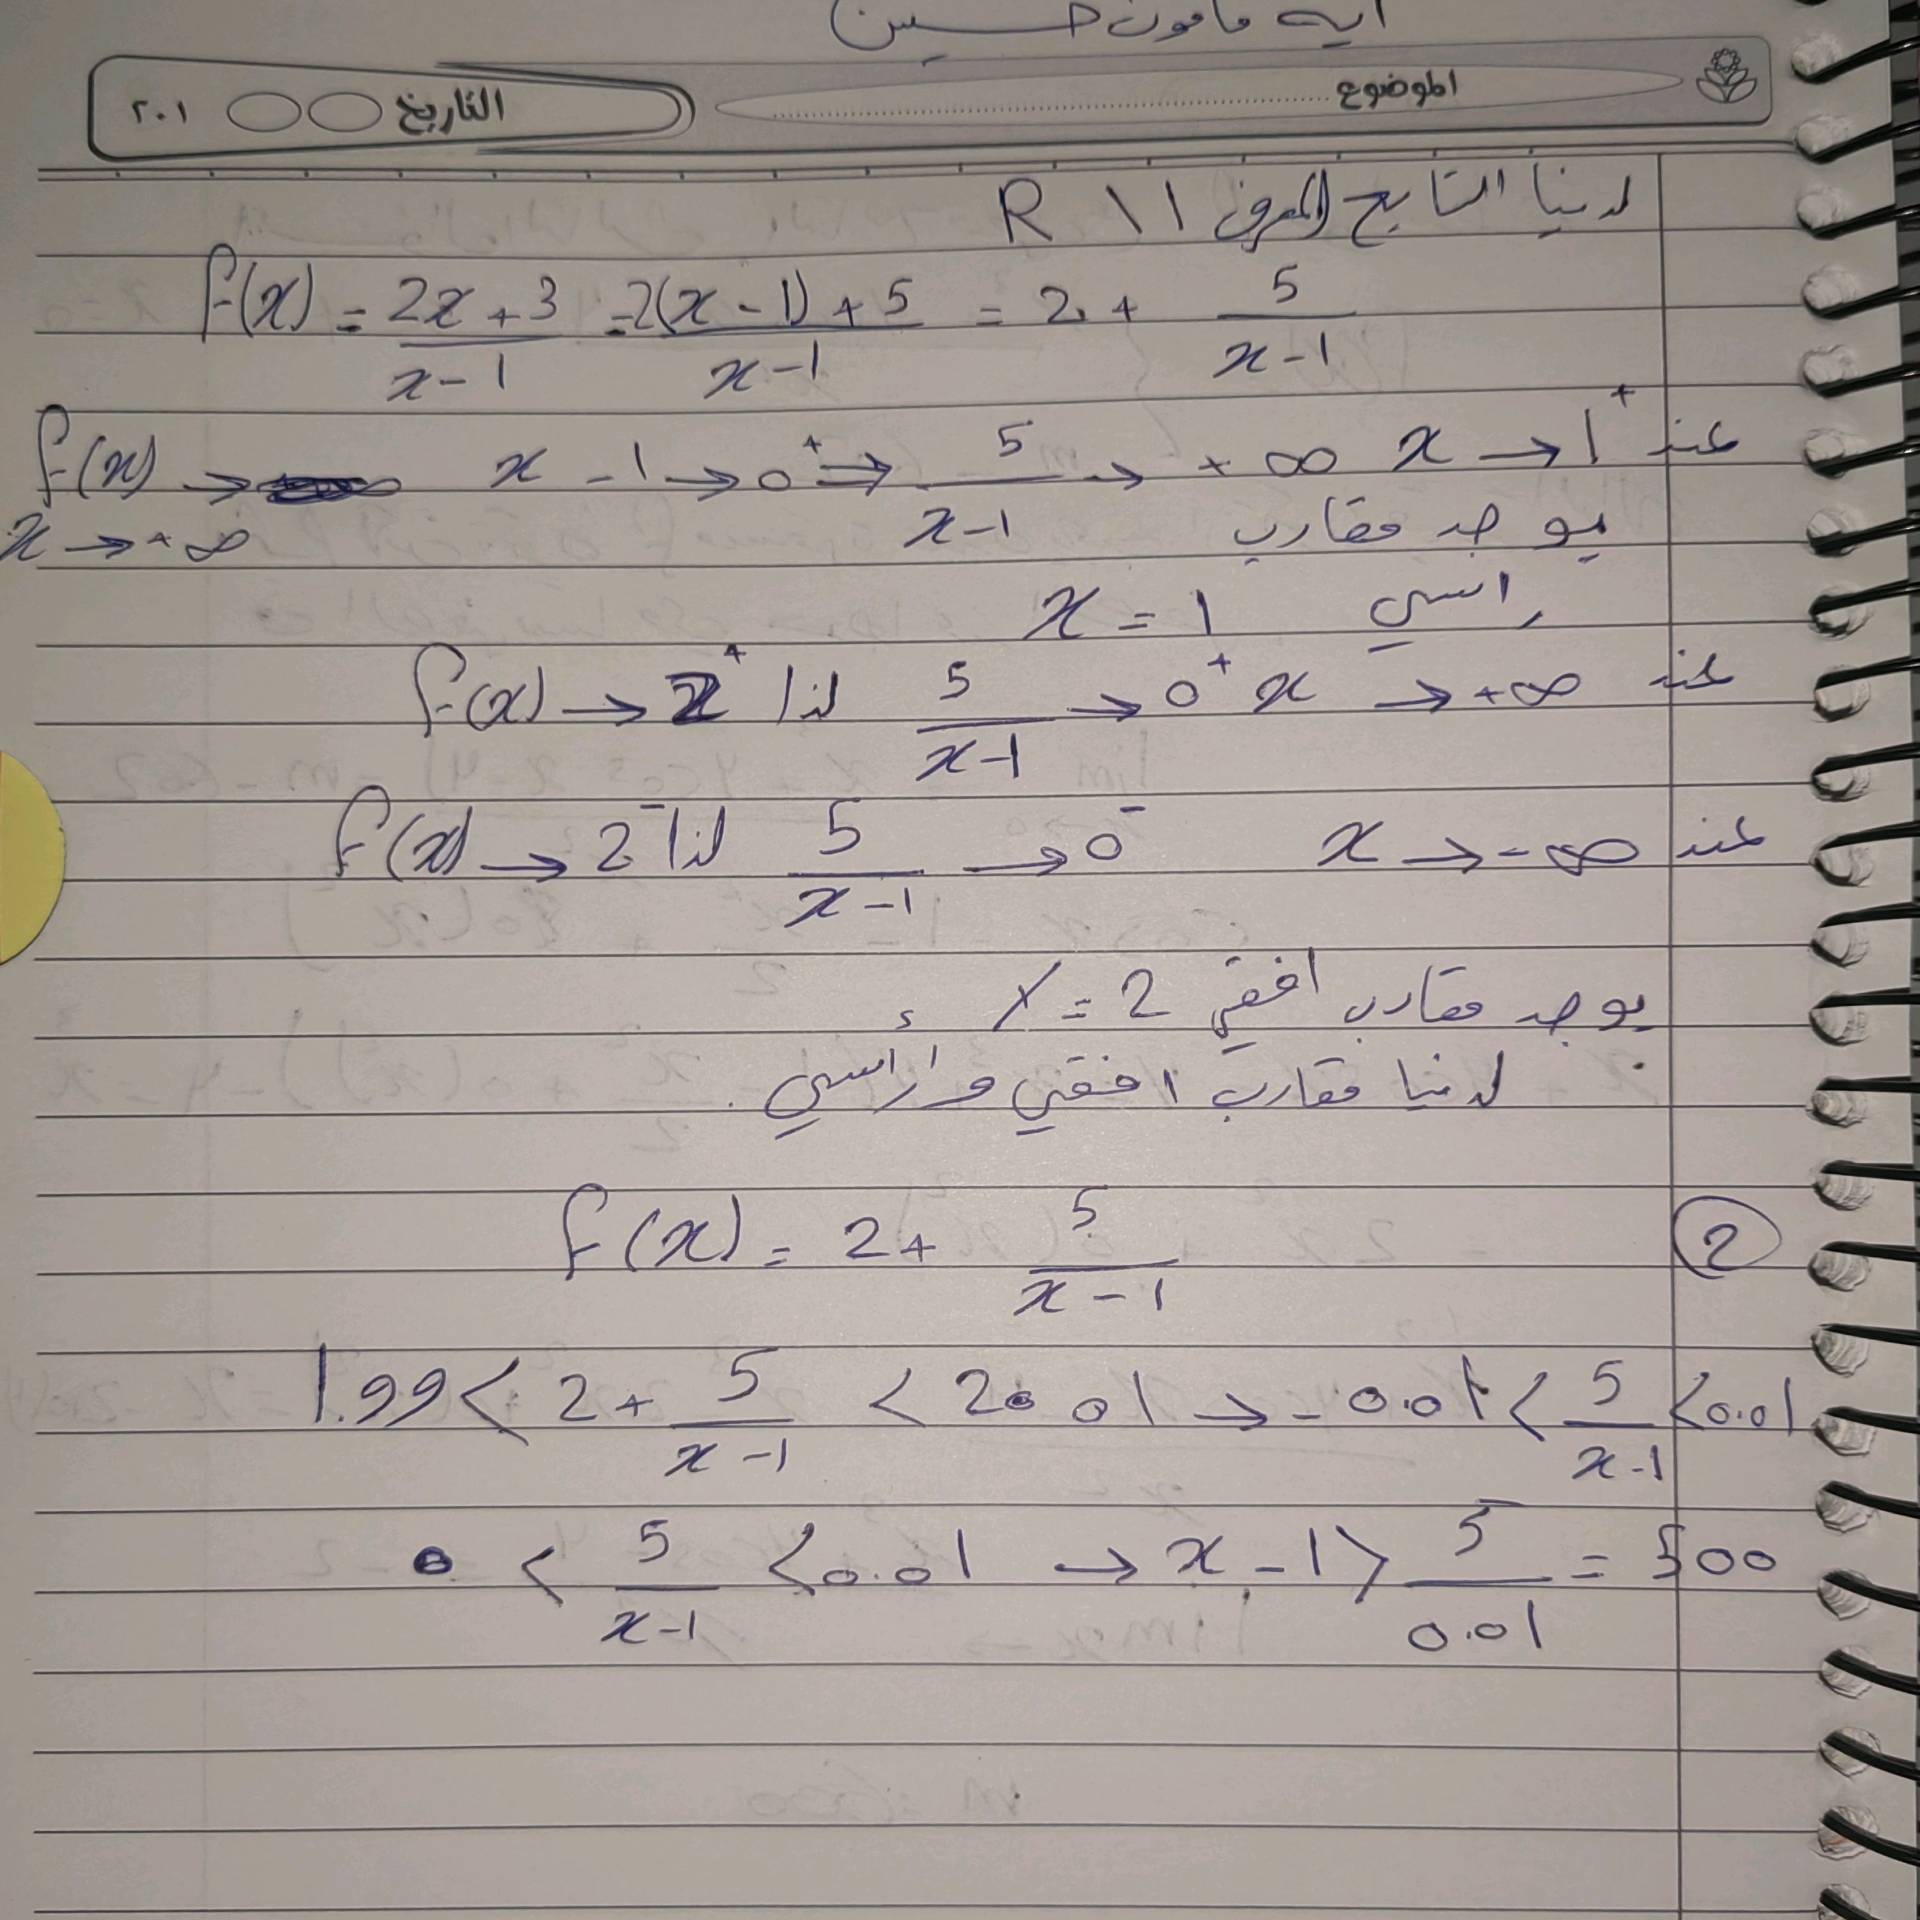 ايه مامون حسين
الموضوع
التاريخ ٢٠١
لدينا التابع المعرف R \ 1
f(x) = 2x+3/x-1 = 2(x-1)+5/x-1 = 2 + 5/x-1
عند x → 1⁺ x-1 → 0⁺ ⇒ 5/x-1 → +∞ f(x) →
x → +∞
يوجد مقارب
راسي x = 1
عند x → +∞ 5/x-1 → 0⁺ لذا f(x) → 2⁺
عند x → -∞ 5/x-1 → 0⁻ لذا f(x) → 2⁻
يوجد مقارب افقي y = 2
لدينا مقارب افقي و رأسي .
② f(x) = 2 + 5/x-1
1.99 < 2 + 5/x-1 < 2.01 → -0.01 < 5/x-1 < 0.01
0 < 5/x-1 < 0.01 → x-1 > 5/0.01 = 500